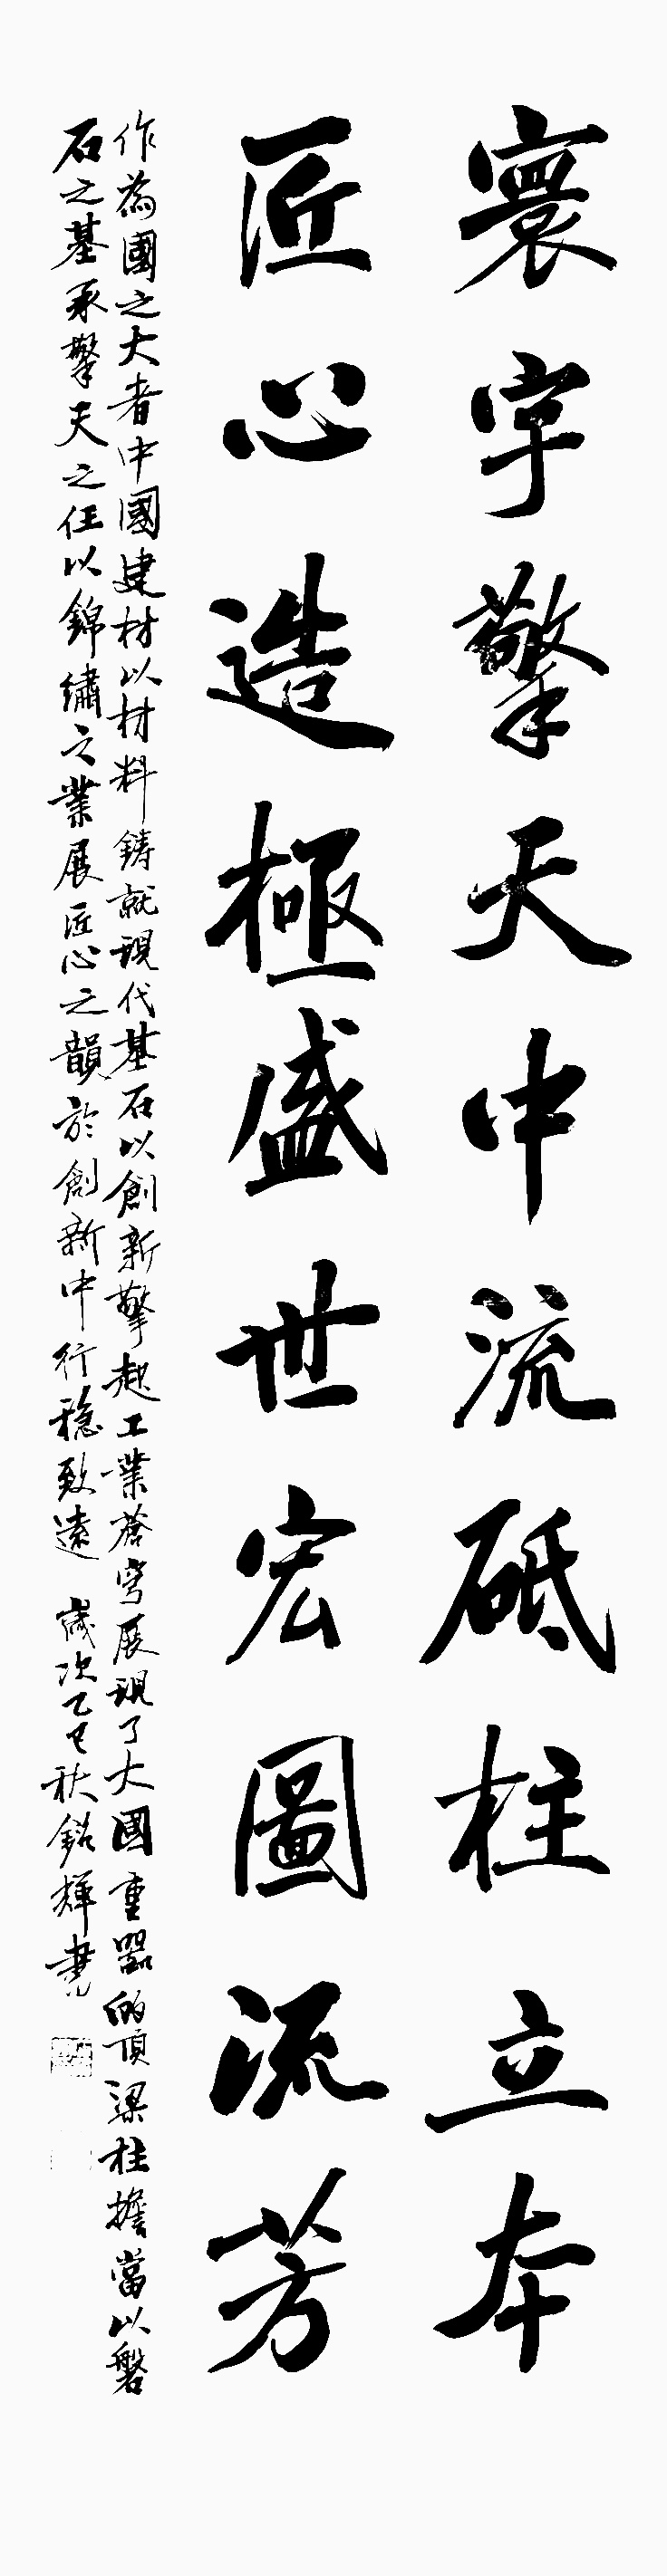 寰宇擎天中流砥柱立本
匠心造極盛世宏圖流芳
作為國之大者中國建材以材料鑄就現代基石以創新擎起工業蒼穹展現了大國重器的頂梁柱擔當以磐
石之基承擎天之任以錦繡之業展匠心之韻於創新中行穩致遠 歲次乙巳秋銘輝書